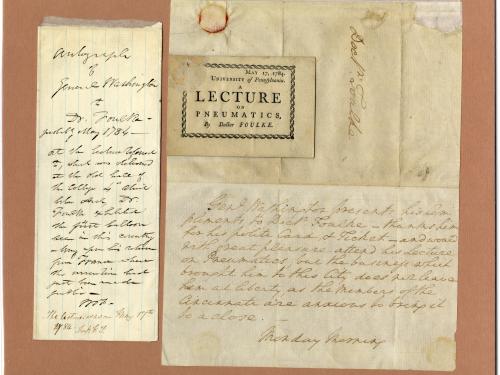 Autograph
of
General Washington
to
Dr. Foulke
May 1784
at the lecture referred
to, which was delivered
at the old hall of
the College 4th above
Dr.
Foulke exhibited
the first balloon
seen in this country
upon his return
from France where
the invention had
just been made
public
The lecture was on May 17th
1784
May 17, 1784.
University of Pennsylvania.
A
LECTURE
ON
PNEUMATICS,
By Doctor FOULKE.
Doctr. Foulke
Genl. Washington presents his com
pliments to Doctr Foulke – thanks him
for his polite Card & Ticket – and would
with great pleasure attend his Lecture
on Pneumatics, but the business which
brought him to this City does not leave
him at liberty, as the Members of the
Cincinnati are anxious to bring it
to a close.
Monday Morning